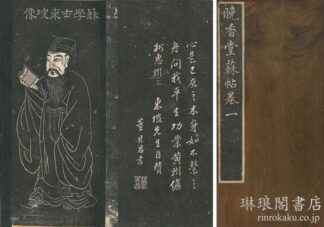 蘇學士東坡像
心是已灰之木身如不繫之
舟問我平生功業黄州儋
州惠州 東坡先生自賛
董其昌書
晩香堂蘇帖卷一
琳琅閣書店
rinrokaku.co.jp